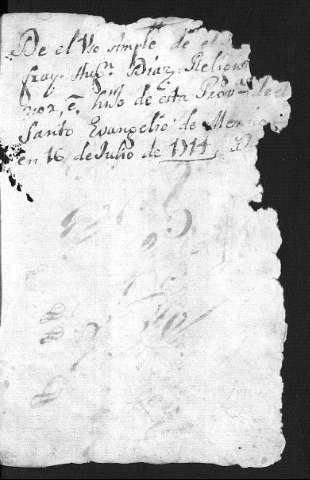 De el Vso simple de el
fray Augn. Diaz Religio
hijo de esta Prova. de el
Santo Evangelio de Mex
en 16 de Julio de 1714